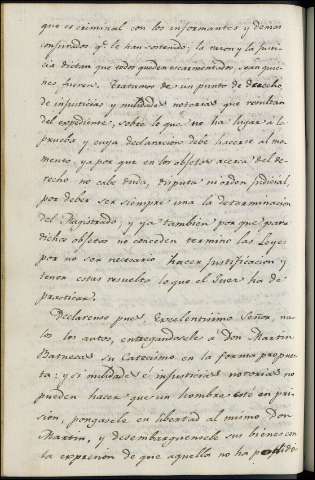 que es criminal con los informantes y demas
conspirados qe. le han sostenido; la razon y la Justi-
cia dictan que todos queden escarmentados, sean quie-
nes fueren. Tratamos de un punto de derecho,
de injusticias y nulidades notorias que resultan
del expediente, sobre lo que no ha lugar á la
prueba y cuya declaracion debe hacerse al mo-
mento, ya por que en los objetos acerca del de-
recho no cabe duda, disputa ni orden judicial,
por deber ser siempre una la determinacion
del Magistrado; y ya tambien por que para
dichos objetos no conceden termino las Leyes
por no ser necesario hacer justificacion y
tener estas resuelto lo que el Juez ha de
practicar.
Declarense pues, Excelentisimo Señor, nu-
los los autos, entregandosele á Don Martin
Barneca su Catecismo en la forma propues-
ta: y si nulidades é injusticias notorias no
pueden hacer que un hombre esté en pri-
sion, pongasele en libertad al mismo Don
Martin, y desembarguensele sus bienes con
la expresion de que aquello no ha podido